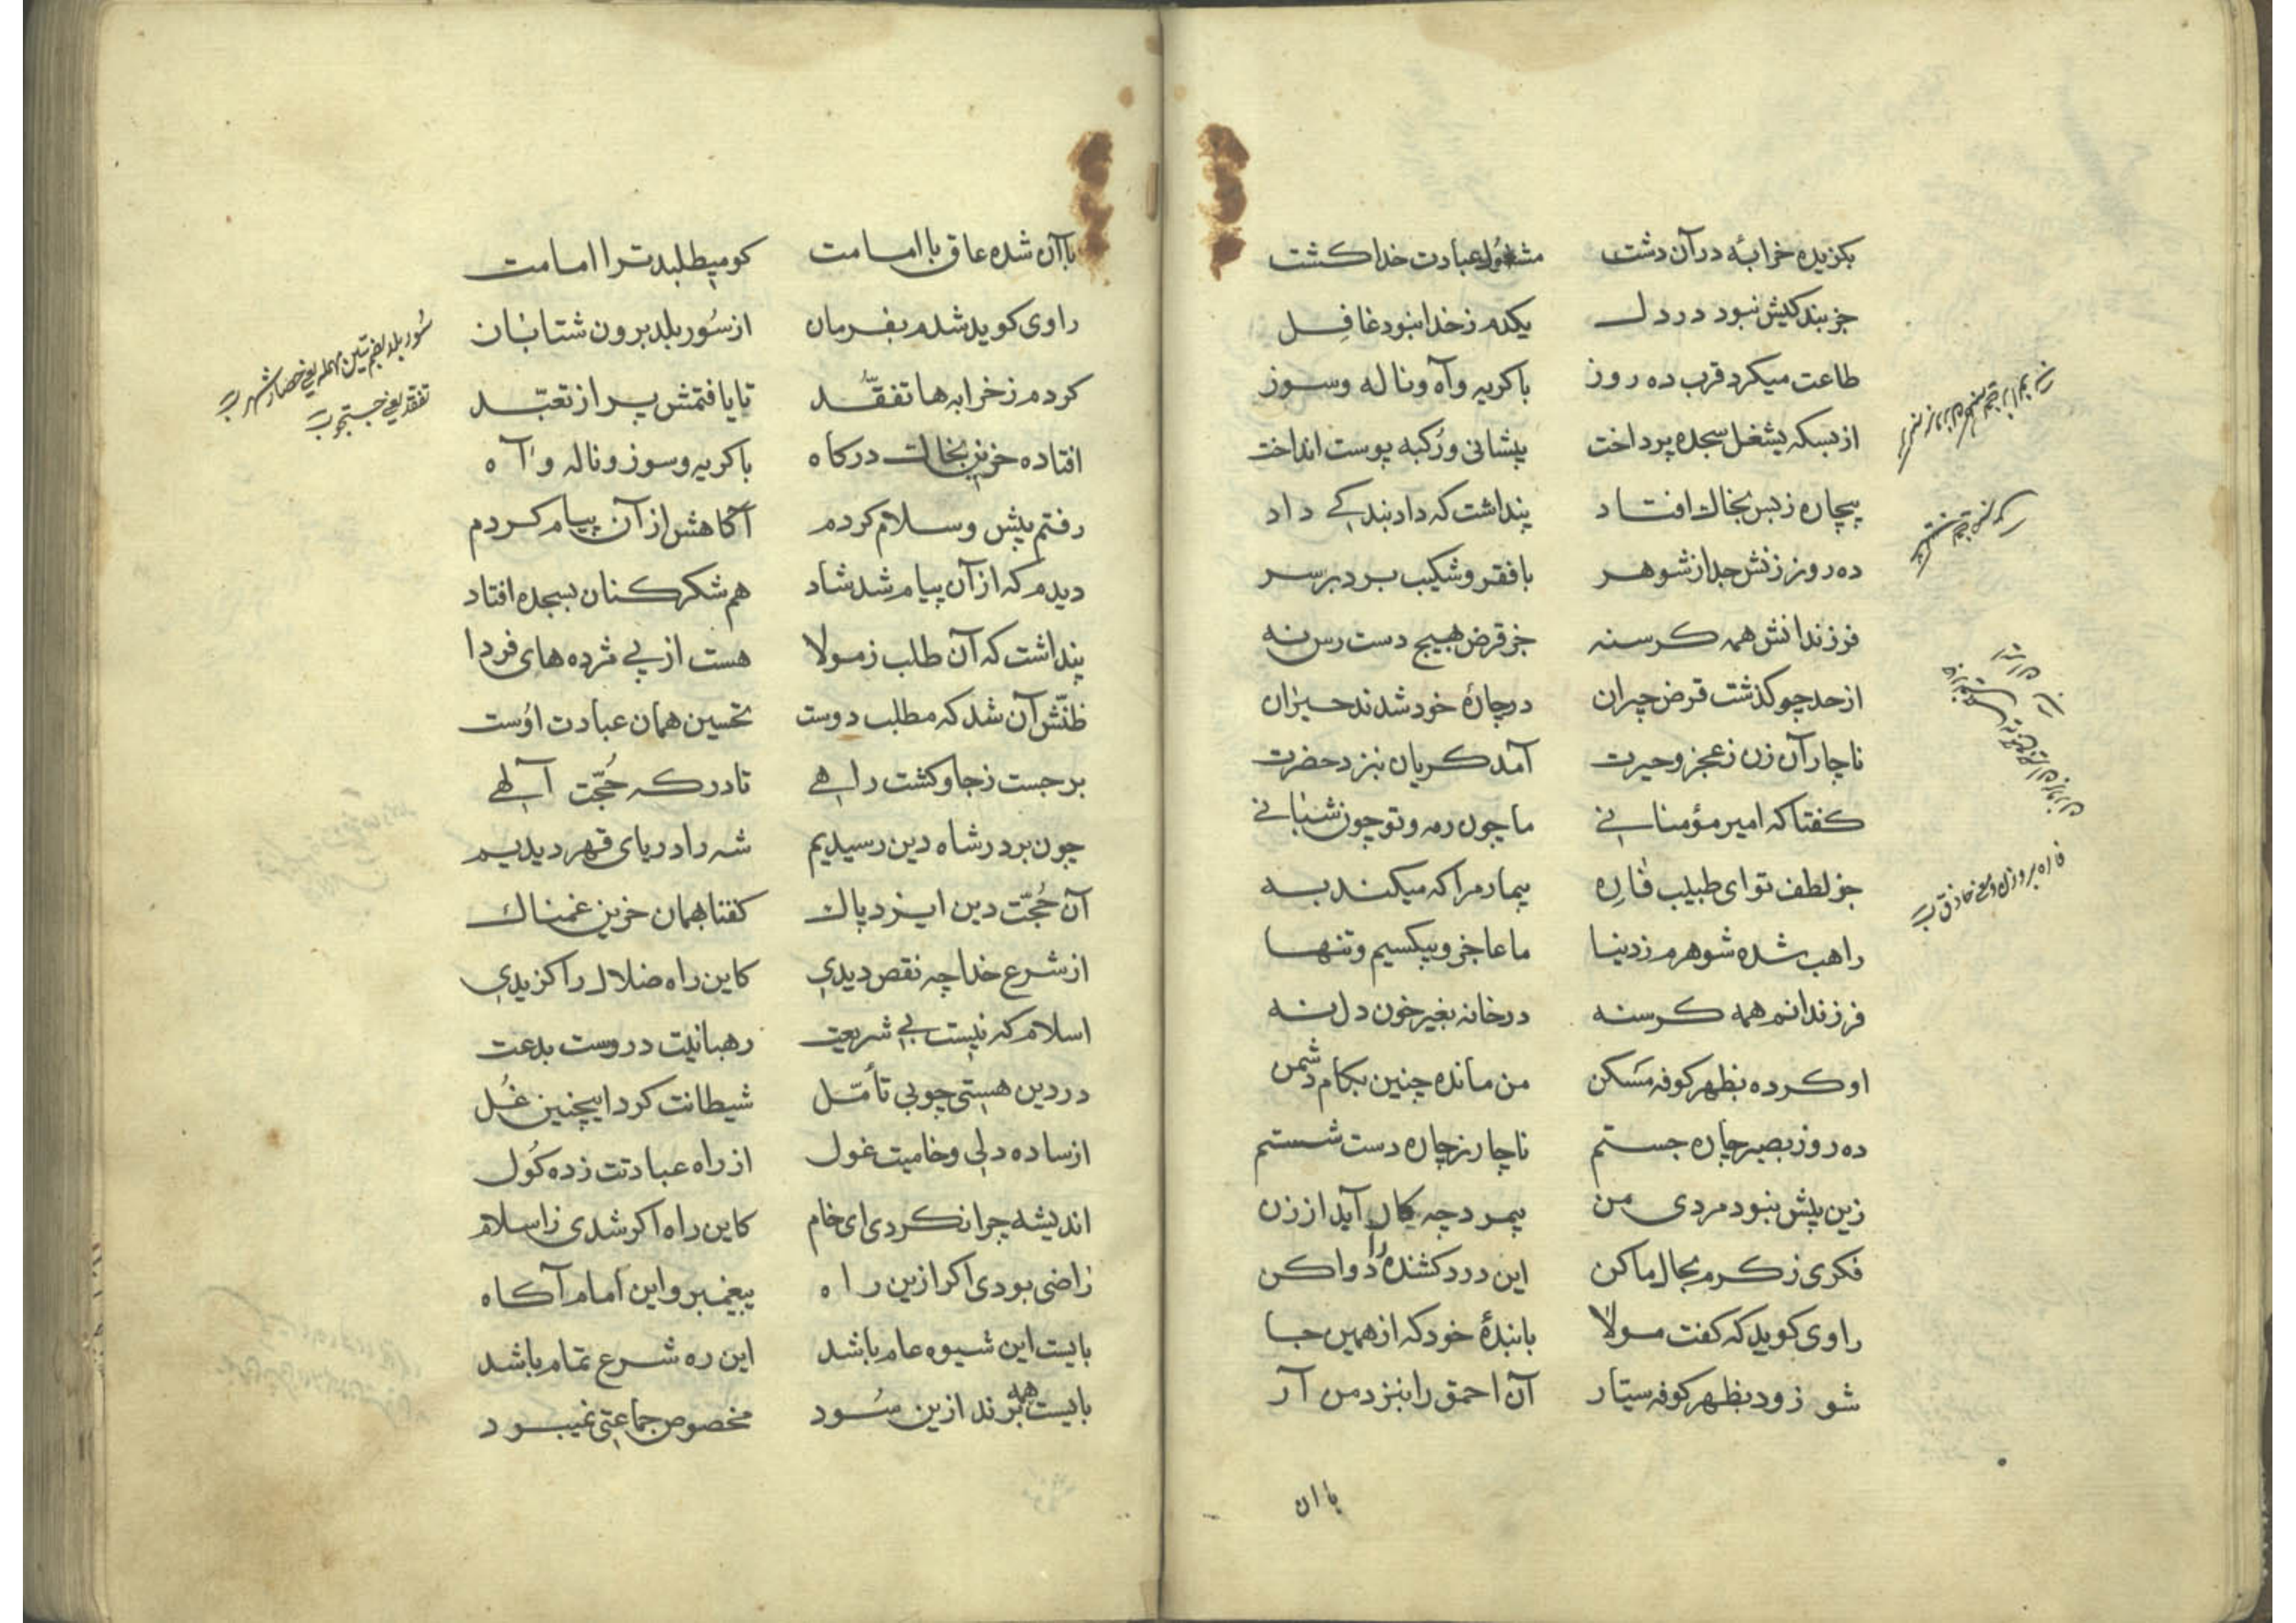 بکزیده خرابهٔ در آن دشت مشغول عبادت خدا کشت
جز بندکیش نبود در دل یکدم ز خدا نبود غافِل
طاعت میکرد قرب ده روز با کریه و آه و ناله و سوز
از بسکه بشغل سجده پرداخت پیشانی و رُکبه پوست انداخت
بیچاره ز بس بخاك افتاد پنداشت که داد بندکے داد
ده روز زنش جدا ز شوهر با فقر و شکیب برد بر سر
فرزندانش همه کرسنه جز قرض بهیج دست رس نه
از حد چو کذشت قرض چیران در چارهٔ خود شدند حیران
ناچار آن زن ز عجز و حیرت آمد کریان بنزد حضرت
کفتا که امیر مؤمنانے ما چون رمه و تو چون شبانے
جز لطف تو ای طبیب فارِه بیمار مرا که میکند به
راهب شده شوهرم ز دنیا ما عاجز و بیکسیم و تنها
فرزندانم همه کرسنه در خانه بغیر خون دل نه
او کرده بظهر کوفه مَسکن من مانده چنین بکام دشمن
ده روز بصبر چاره جستم ناچار ز چاره دست شستم
زین پیش نبود مردی من بیمرد چه کار آید از زن
فکری ز کرم بحال ما کن این درد کشنده را دوا کن
راوی کوید که کفت مولا با بندهٔ خود که از همین جا
شو زود بظهر کوفه سیّار آن احمق را بنزد من آر
با ان
با آن شده عاق با امامت کو میطلبد ترا امامت
راوی کوید شدم بفرمان از سُور بلد برون شتابان
کردم ز خرابه ها تفقّد تا یافتمش پر از تعبّد
افتاده حزین بخاك درکاه با کریه و سوز و ناله و آه
رفتم پیش و سلام کردم آکاهش از آن پیام کردم
دیدم که از آن پیام شد شاد هم شکر کنان بسجده افتاد
پنداشت که آن طلب ز مولا هست از پے مژده های فردا
ظنّش آن شد که مطلب دوست تحسین همان عبادت اوُست
بر جست ز جا و کشت راهے تا درکه حُجّت آلهے
چون بر در شاه دین رسیدیم شه را دریای قهر دیدیم
آن حُجّت دین ایزد پاك کفتا بهمان حزین غمناك
از شرع خدا چه نقص دیدی کاین راه ضلال را کزیدی
اسلام که نیست بے شریعت رهبانیّت دروست بدعت
در دین هستی چو بی تأمّل شیطانت کرد اینچنین غُل
از ساده دلی و خامیت غول از راه عبادتت زده کُول
اندیشه چرا نکردی ای خام کاین راه اکر شدی ز اسلام
راضی بودی اکر ازین راه پیغمبر و این امام آکاه
بایست این شیوه عام باشد این ره شرع تمام باشد
بایست همه برند ازین سُود مخصوص جماعتی نمیبود
تفقد یعنے جستجوی